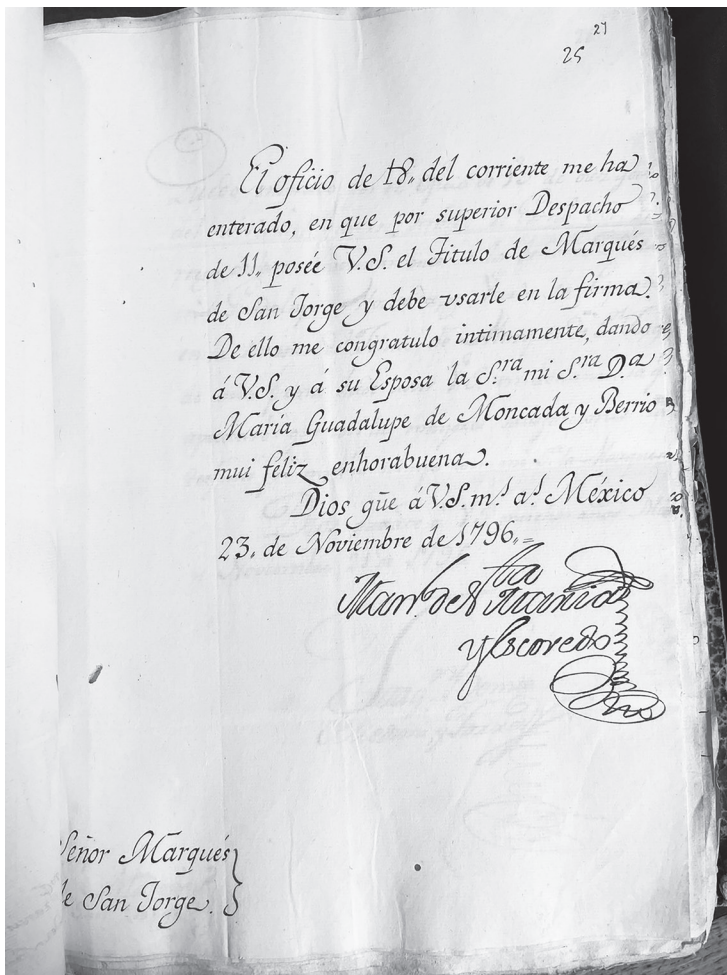 27
25
El oficio de 18,, del corriente me ha
enterado, en que por superior Despacho
de 11,, poseé V.S. el Titulo de Marqués
de San Jorge y debe vsarle en la firma.
De ello me congratulo intimamente, dando
á V.S. y á su Esposa la S.ra mi S.ra D.a
María Guadalupe de Moncada y Berrio
mui feliz enhorabuena.
Dios gūe á V.S. m.s a.s México
23,, de Noviembre de 1796,,=
de S.ta María
y Escovedo
Señor Marqués
de San Jorge.